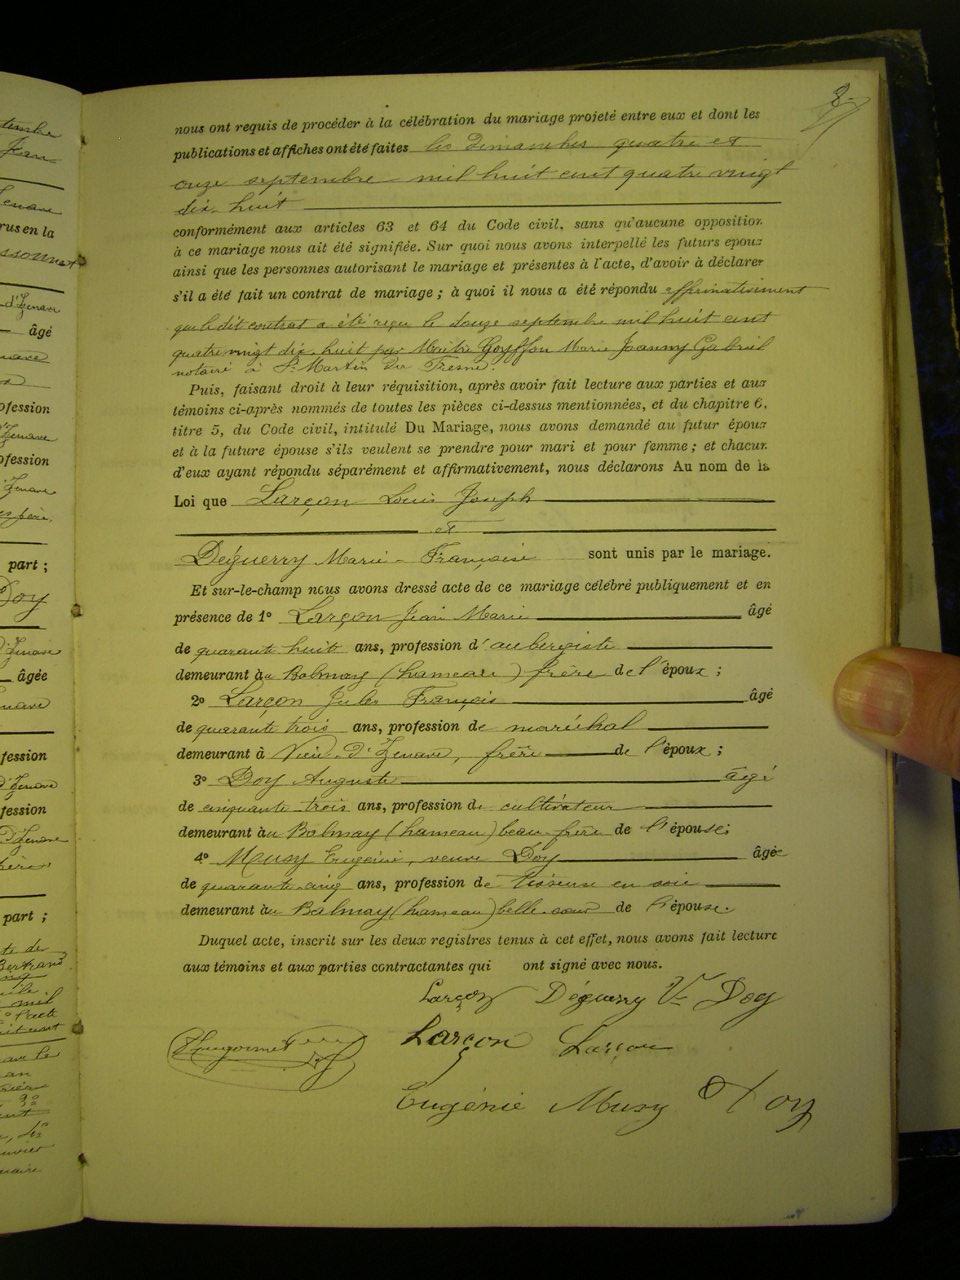 8
nous ont requis de procéder à la célébration du mariage projeté entre eux et dont les
publications et affiches ont été faites les dimanches quatre et
onze septembre mil huit cent quatre vingt
dix huit
conformément aux articles 63 et 64 du Code civil, sans qu'aucune opposition
à ce mariage nous ait été signifiée. Sur quoi nous avons interpellé les futurs époux
ainsi que les personnes autorisant le mariage et présentes à l'acte, d'avoir à déclarer
s'il a été fait un contrat de mariage ; à quoi il nous a été répondu affirmativement
que le dit contrat a été reçu le douze septembre mil huit cent
quatre vingt dix huit par Maître Goyffon Marie Joanny Gabriel
notaire à St Martin du Fresne.
Puis, faisant droit à leur réquisition, après avoir fait lecture aux parties et aux
témoins ci-après nommés de toutes les pièces ci-dessus mentionnées, et du chapitre 6,
titre 5, du Code civil, intitulé Du Mariage, nous avons demandé au futur époux
et à la future épouse s'ils veulent se prendre pour mari et pour femme ; et chacun
d'eux ayant répondu séparément et affirmativement, nous déclarons Au nom de la
Loi que Larçon Louis Joseph
et
Déguerry Marie-Françoise sont unis par le mariage.
Et sur-le-champ nous avons dressé acte de ce mariage célébré publiquement et en
présence de 1° Larçon Jean Marie âgé
de quarante huit ans, profession d'aubergiste
demeurant àu Balmay (hameau) frère de l'époux ;
2° Larçon Jules François âgé
de quarante trois ans, profession de maréchal
demeurant à Vieu-d'Izenave, frère de l'époux ;
3° Doy Auguste âgé
de cinquante trois ans, profession de cultivateur
demeurant àu Balmay (hameau) beau-frère de l'épouse;
4° Musy Eugénie, veuve Doy âgée
de quarante-cinq ans, profession de tisseuse en soie
demeurant àu Balmay (hameau) belle-sœur de l'épouse.
Duquel acte, inscrit sur les deux registres tenus à cet effet, nous avons fait lecture
aux témoins et aux parties contractantes qui ont signé avec nous.
Larçon Déguerry Vve Doy
Larçon Larçon
Eugénie Musy Doy